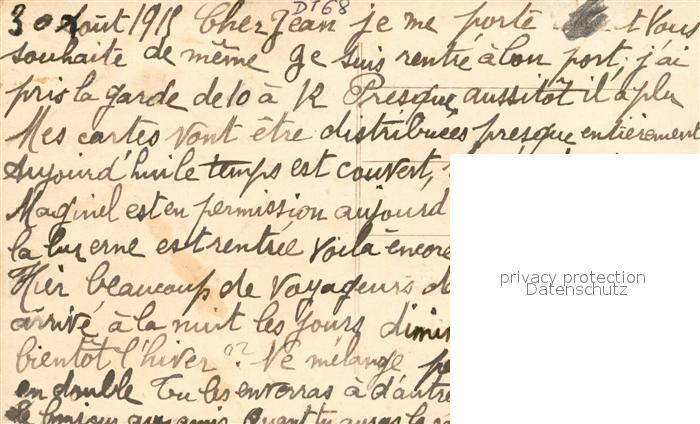 DT68
30 Août 1915 Cher Jean je me porte et vous
souhaite de même Je suis rentré à bon port, j'ai
pris la garde de 10 à 12 Presque aussitôt il a plu
Mes cartes vont être distribuées presque entièrement
Aujourd'hui le temps est couvert,
Maginel est en permission aujourd
la luzerne est rentrée Voilà encore
Hier beaucoup de voyageurs
arrivé à la nuit les jours dimin
bientôt l'hiver Ne mélange
en double Tu les enverras à d'autre
le bonjour aux amis Quant tu auras
privacy protection
Datenschutz